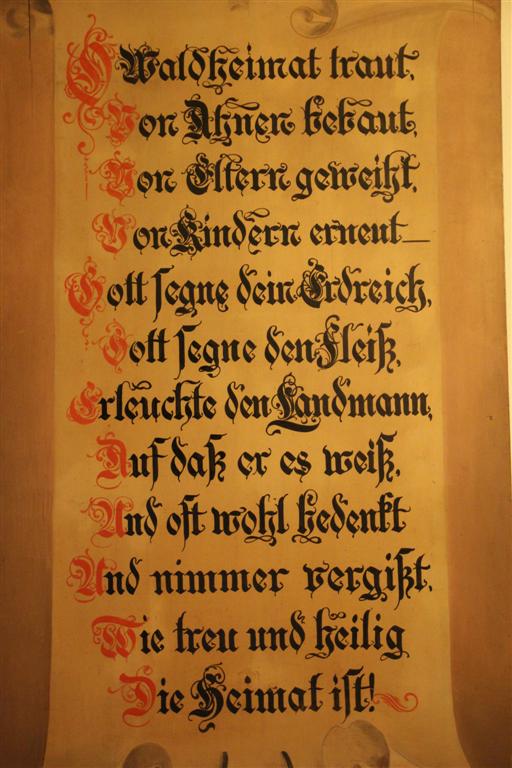 O Waldheimat traut,
Von Ahnen bebaut,
Von Eltern geweiht,
Von Kindern erneut_
Gott segne dein Erdreich,
Gott segne den Fleiß,
Erleuchte den Landmann,
Auf daß er es weiß,
Und oft wohl bedenkt
Und nimmer vergißt,
Wie treu und heilig
Die Heimat ist!